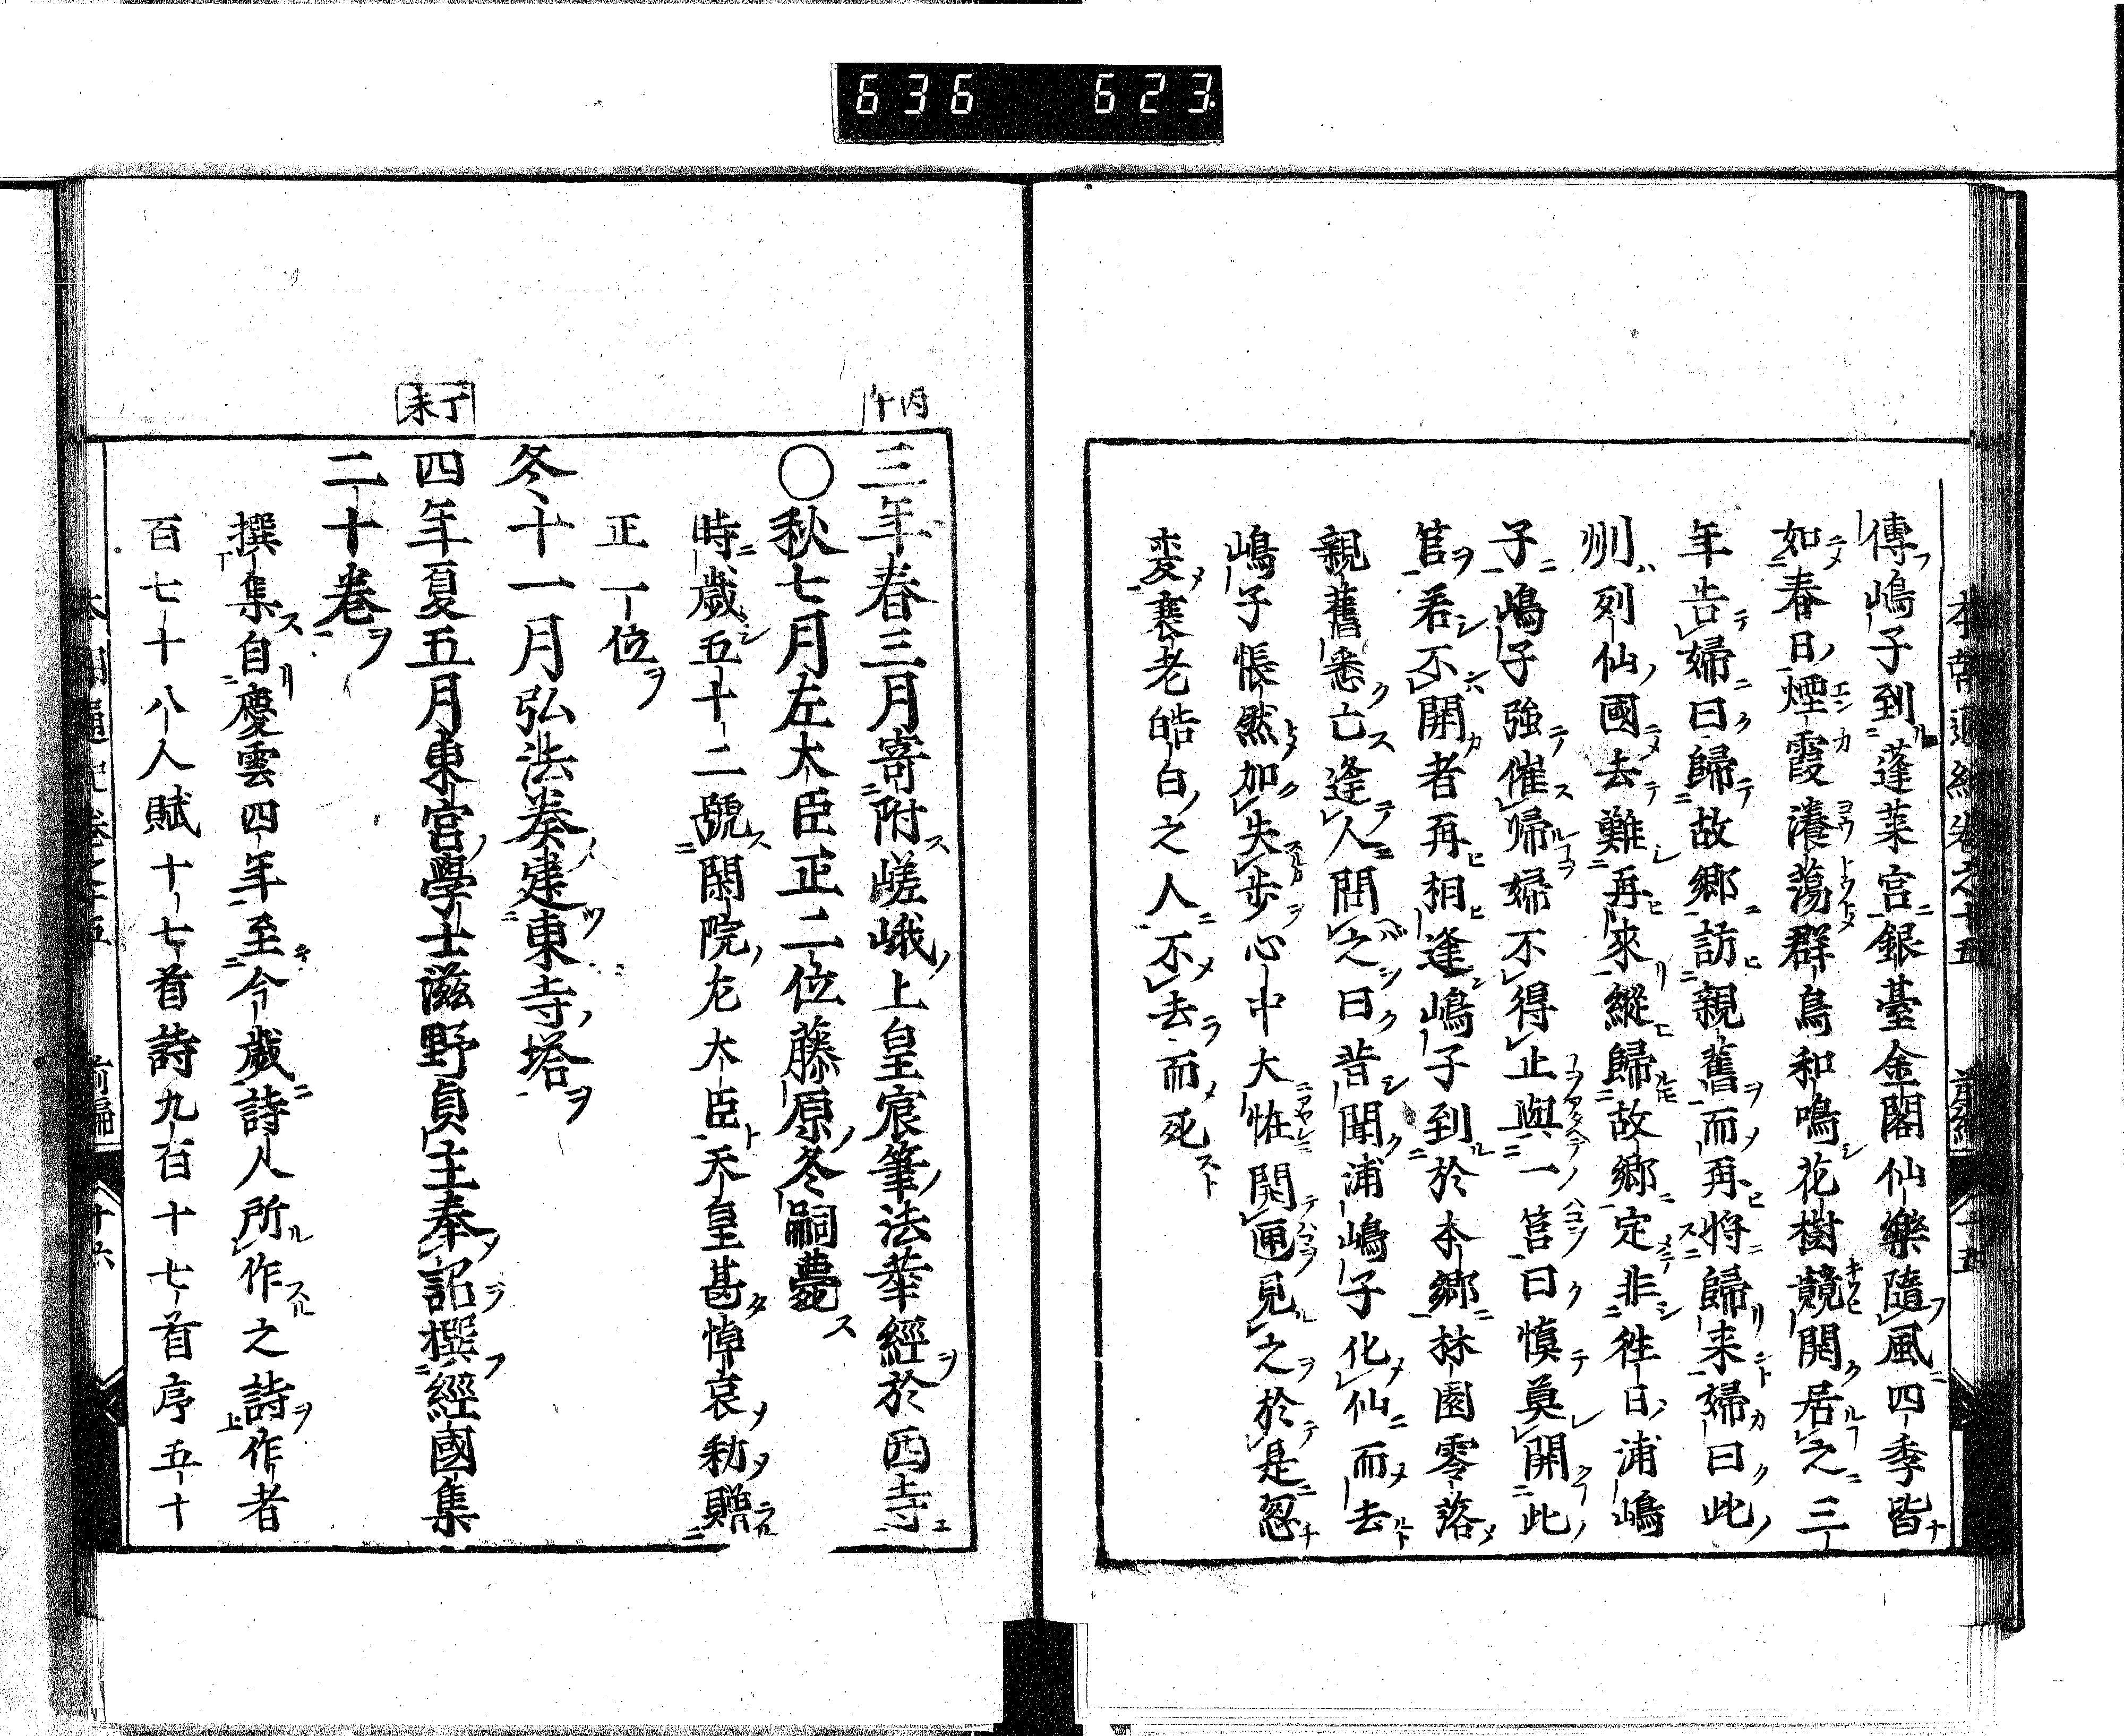 636 623
本朝通紀卷之十五 前編 十五
傳嶋子到蓬萊宮銀臺金閣仙樂隨風四季皆
如春日煙霞瀁蕩群鳥和鳴花樹競開居之三
年告婦曰歸故鄉訪親舊而再将歸来婦曰此
州列仙國去難再來縱歸故鄉定非往日浦嶋
子嶋子強催帰婦不得止與一筥曰慎莫開此
筥若不開者再相逢嶋子到於本鄉林園零落
親舊悉亡逢人問之曰昔聞浦嶋子化仙而去
嶋子悵然加失步心中大恠開匣見之於是忽
変衰老皓白之人不去而死
丙午
三年春三月寄附嵯峨上皇宸筆法華經於西寺
〇秋七月左大臣正二位藤原冬嗣薨
時歲五十二號閑院左大臣天皇甚悼哀勅贈
正一位
冬十一月弘法奏建東寺塔
丁未
四年夏五月東宮學士滋野貞主奉詔撰經國集
二十卷
撰集自慶雲四年至今歲詩人所作之詩作者
百七十八人賦十七首詩九百十七首序五十
本朝通紀卷之十五 前編 十六